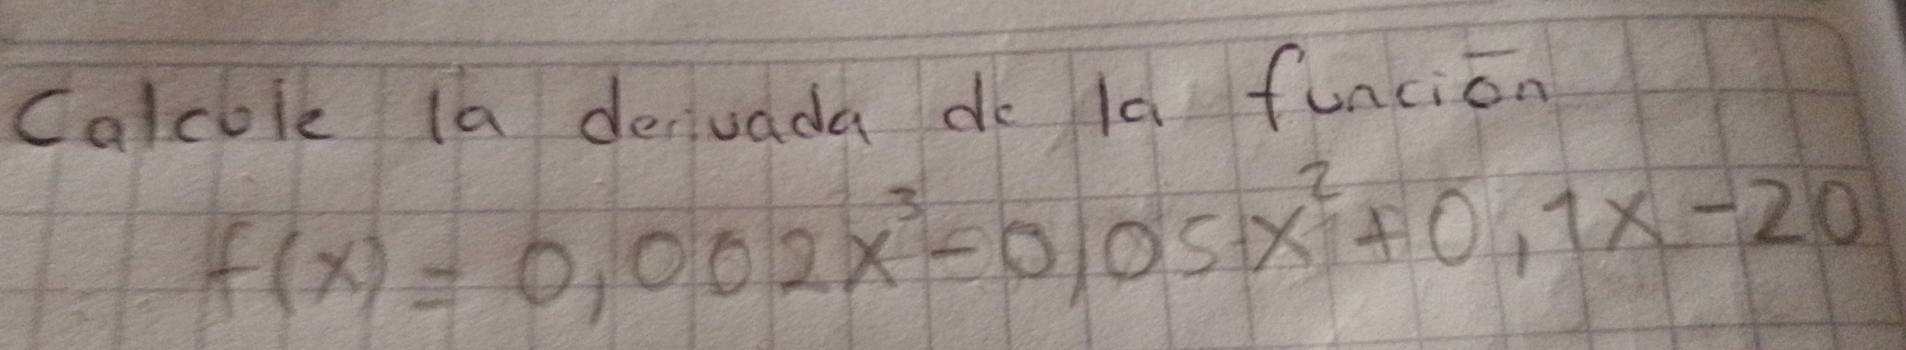 Calcule la derivada de la función
f(x) = 0,002x³ - 0,05x² + 0,1x - 20